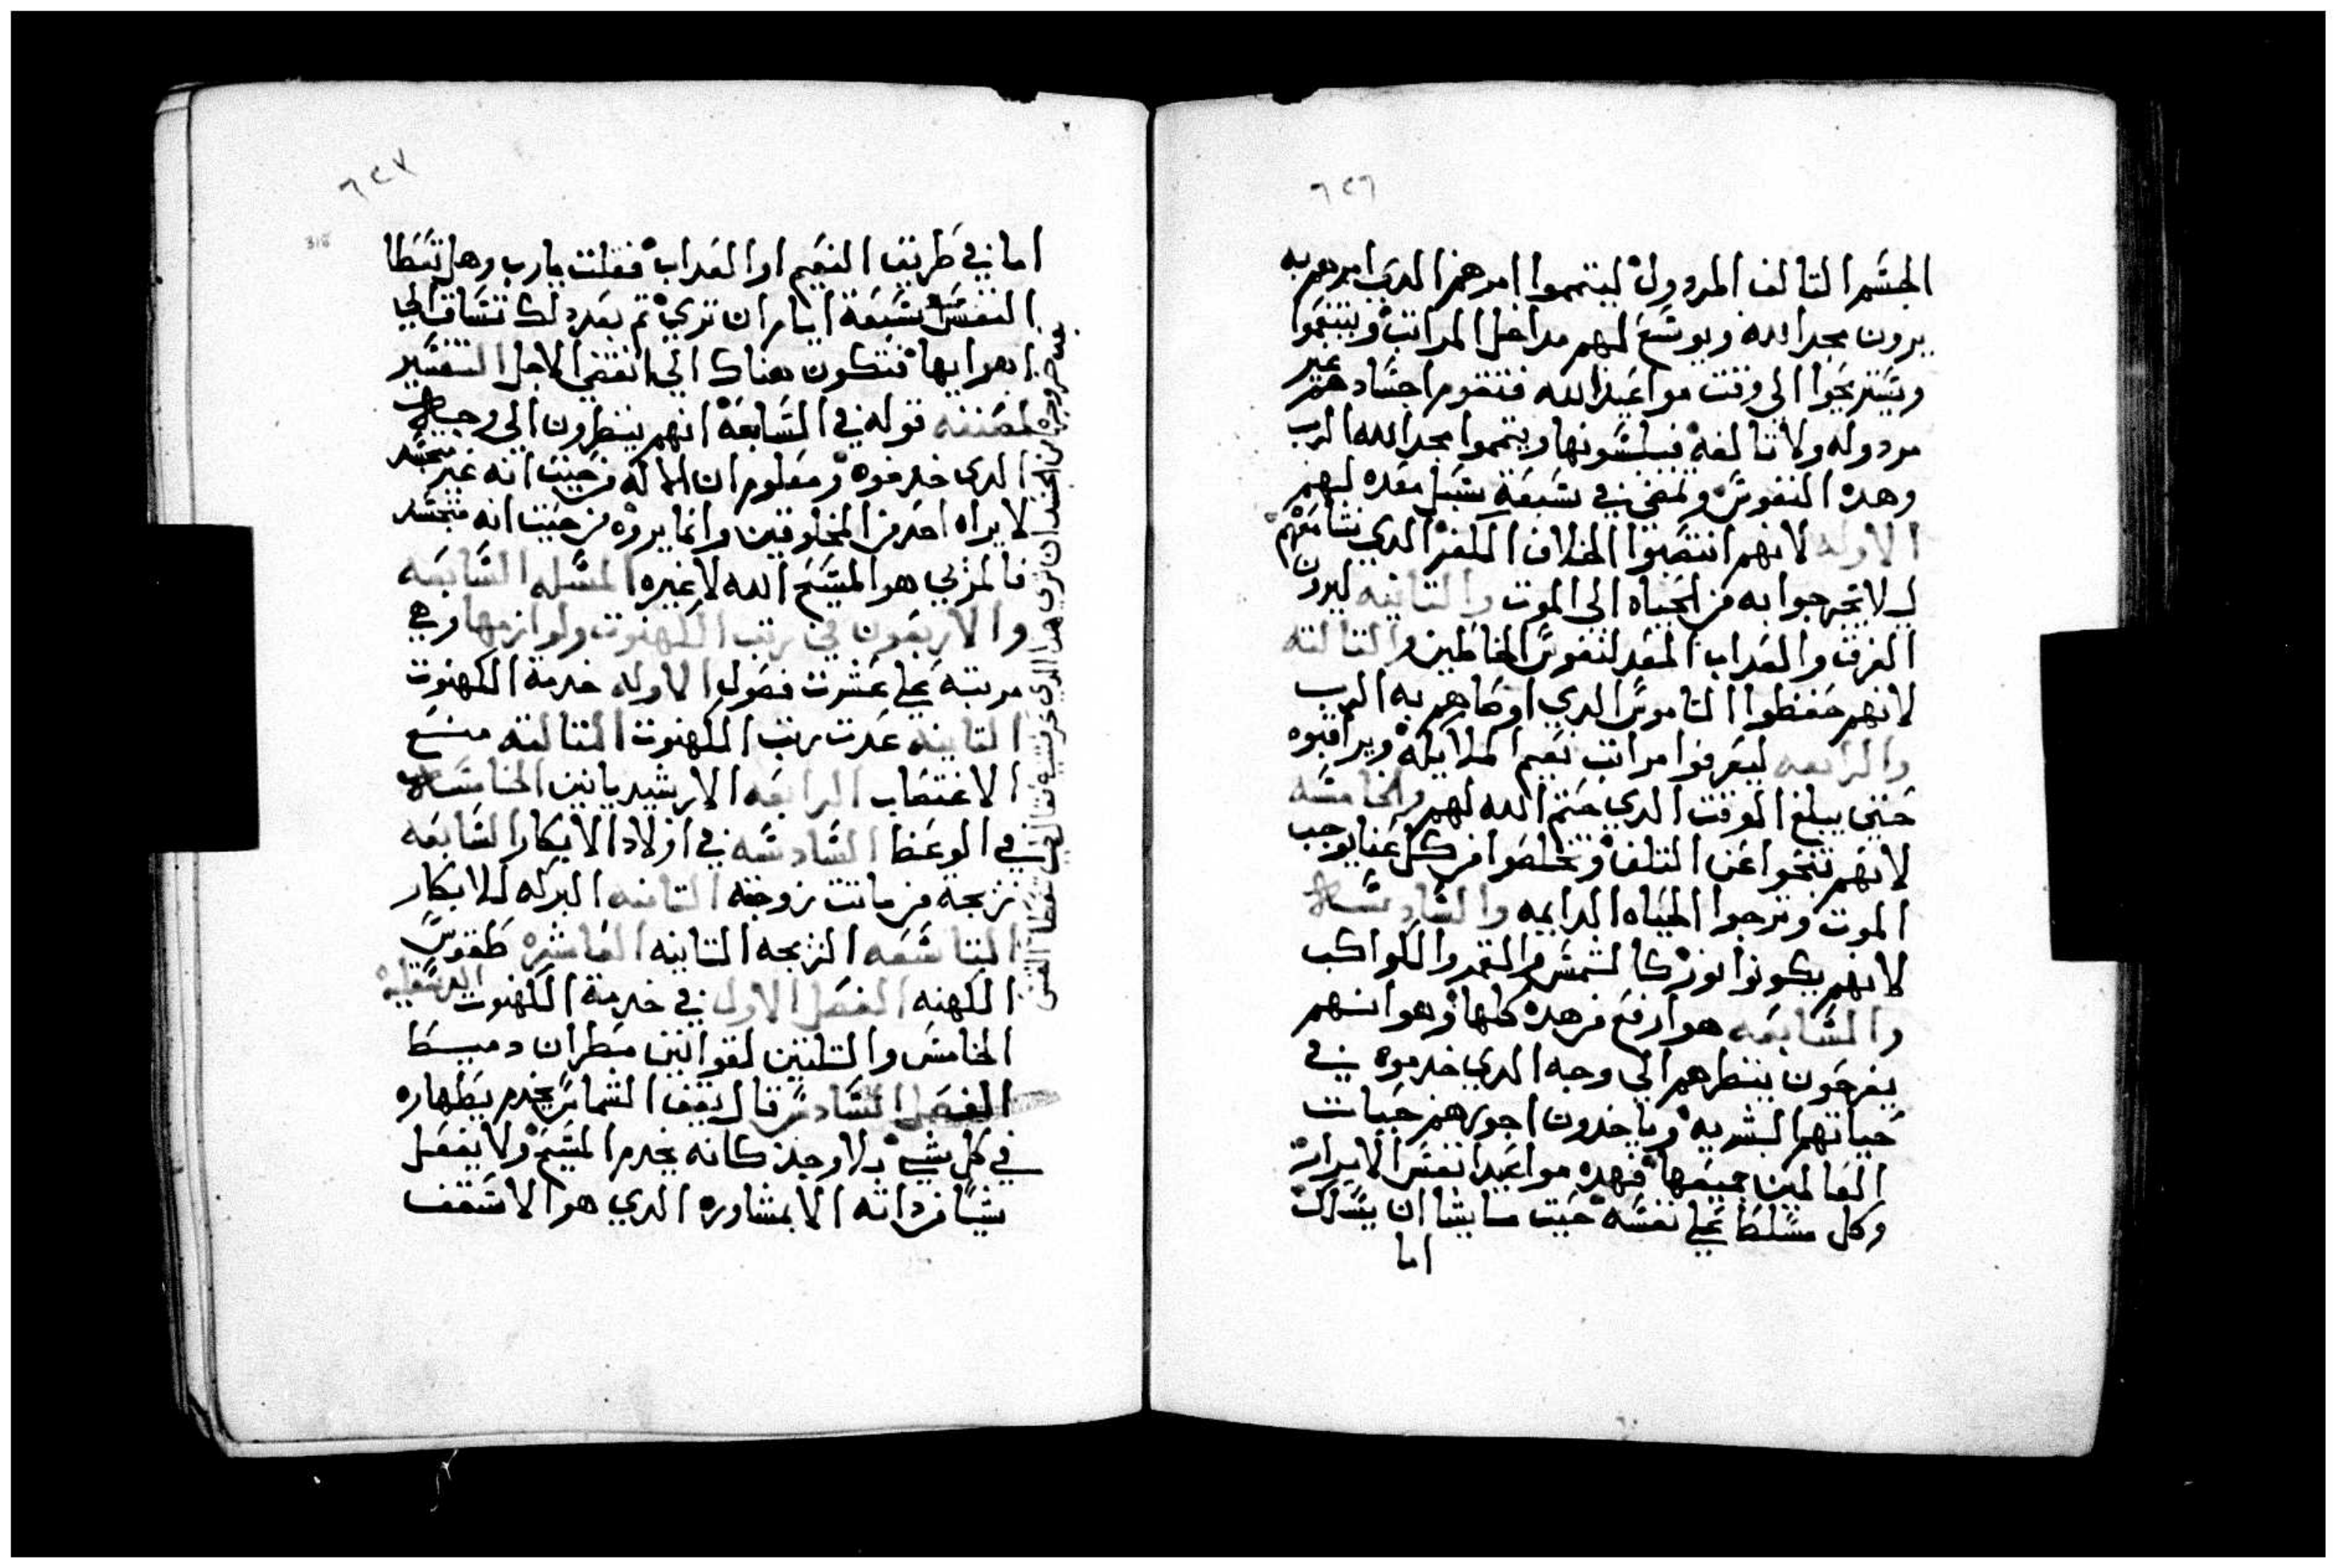 ٦٢٦
الجسم التالف المردول ليتمموا امر هز الدي امرهم به
يرون مجد الله ويوسع لهم مداخل المراتب ويتنعموا
ويستريحوا الي وقت مواعيد الله فتقوم اجسادهم غير
مردوله ولا تالفه فيلبسونها ويتمموا بمجد الله الرب
وهده النفوس ولمضي في سبعة سبل معده لهم
الاوله لانهم انتصبوا لخلاف الكفر الدي نشا معهم
لي لا تخرجوا به من الحياه الي الموت والتانيه ليرون
الغرف والعداب المعد لنفوس الخاطين والتالته
لانهم حفظوا الناموس الدي اوصاهم به الرب
والرابعه ليعرفوا مراتب نعيم الملايكه ويراقبوه
حتي يبلغ الوقت الدي حتم الله لهم والخامسه
لانهم تنحوا عن التلف وتخلصوا من كل عنا يوجب
الموت وترجوا الحياه الدايمه والسادسه
لانهم يكونوا نور كالشمس والقمر والكواكب
والسابعه هو ارفع من هده كلها وهو انهم
يفرحون بنظرهم الي وجه الدي خدموه في
حياتهم البشريه وياخدون اجورهم حيات
العالمين جميعها فهده مواعيد انفس الابرار
وكل مسلط علي نفسه حيت ما يشا ان يسلك
اما
٦٢٧
315
اما في طريق النعيم او العداب فقلت يارب وهل تعطا
النفس سبعة ايام ان تري تم بعد دلك تساق الي
ابوابها فتكون هناك الي انقضي الاجل التفسير
لمصنفه قوله في السابعة انهم ينظرون الي وجه
الدي خدموه ومعلوم ان الاله من حيت انه غير متجسد
لا يراه احد من المخلوقين وانما يروه من حيت انه متجسد
فالمري هو المسيح الله لا غيره المسله السابعه
والاربعون في رتب الكهنوت ولوازمها وهي
مرتبه علي عشرت فصول الاوله خدمة الكهنوت
التانيه عدت رتب الكهنوت التالته منع
الاغتصاب الرابعه الارشيديانين الخامسه
في الوعظ السادسه في اولاد الابكار السابعه
تزيجة من ماتت زوجته التامنه البركه للابكار
التاسعه التزيجه التانيه العاشره طقوس
الكهنه الفصل الاول في خدمة الكهنوت الدسقليه
الخامس والتلتين لقوانين مطران دميط
الفصل السادس قال يقف الشماس يخدم بطهاره
في كل شي بلا وجد كانه يخدم المسيح ولا يفعل
شيا من داته الا بمشاورة الدي هو الاسقف